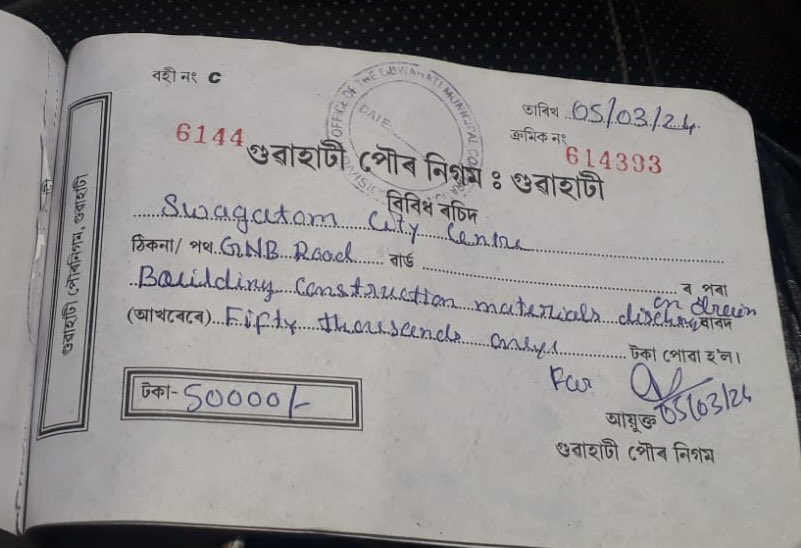 বহী নং C
OFFICE OF THE GUWAHATI MUNICIPAL
DATE
তাৰিখ 05/03/24
ক্ৰমিক নং
6144
614393
গুৱাহাটী পৌৰ নিগম : গুৱাহাটী
বিবিধ ৰচিদ
Swagatom City Centre
ঠিকনা/ পথ GNB Road ৱাৰ্ড ৰ পৰা
Building construction materials discharge on drain বাবদ
(আখৰেৰে) Fifty thousands only টকা পোৱা হ'ল।
টকা- 50000/-
For
05/03/24
আয়ুক্ত
গুৱাহাটী পৌৰ নিগম
গুৱাহাটী পৌৰনিগম, গুৱাহাটী